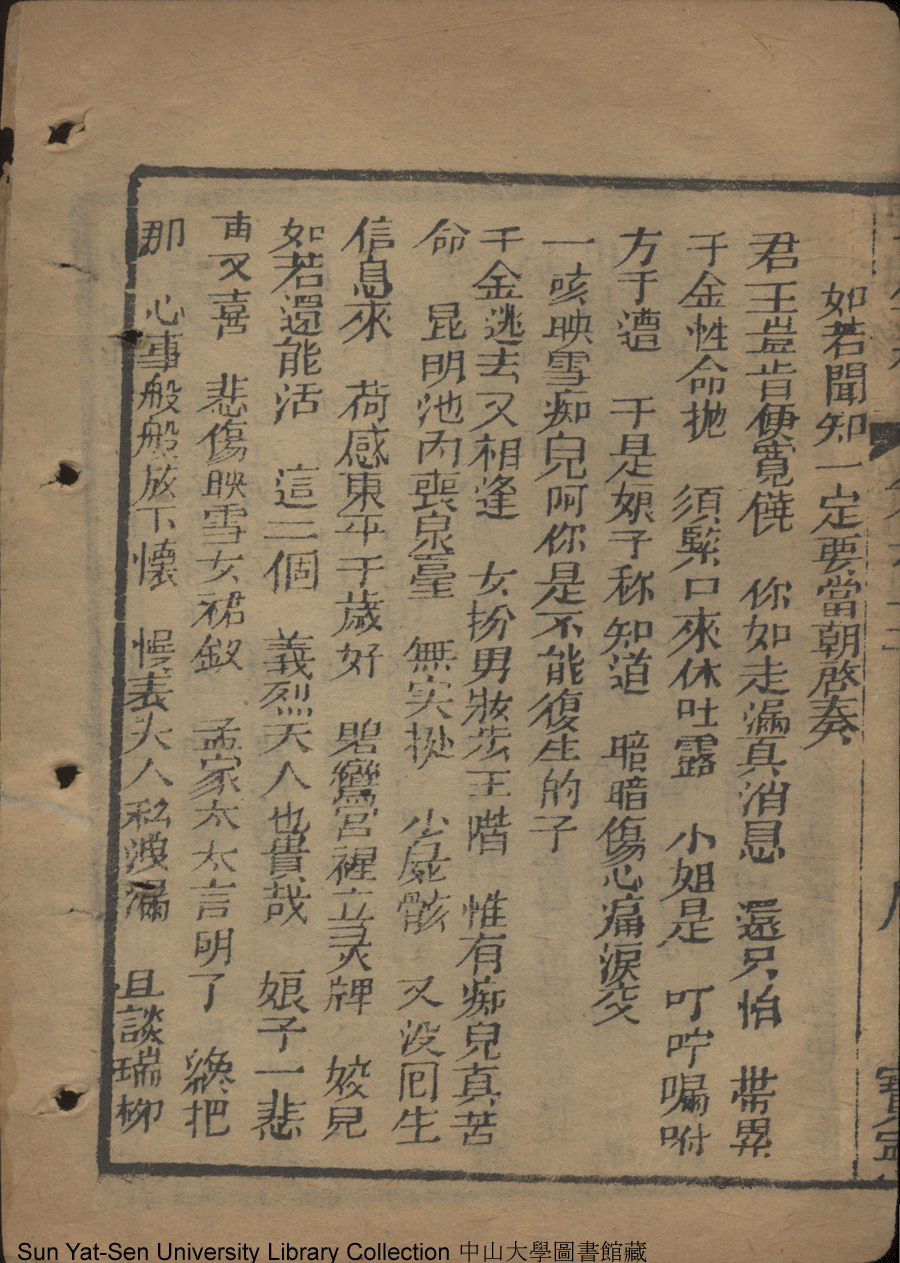 如若聞知一定要當朝啓奏
君王豈肯便寬饒 你如走漏真消息 還只怕 帶累
千金性命抛 須緊口來休吐露 小姐是 叮咛嘱咐
方于遭 于是娘子称知道 暗暗傷心痛淚交
一咳映雪痴兒呵你是不能復生的子
千金逃去又相逢 女扮男妝步王階 惟有痴兒真苦
命 昆明池內喪泉臺 無实 少屍骸 又没囘生
信息來 荷感東平千歲好 碧鸞宮裡立灵牌 姣兒
如若還能活 這三個 義烈天人也貴哉 娘子一悲
又喜 悲傷映雪女裙釵 孟家太太言明了 終把
那 心事般般放下懷 慢表夫人私洩漏 且談瑞柳
Sun Yat-Sen University Library Collection 中山大學圖書館藏